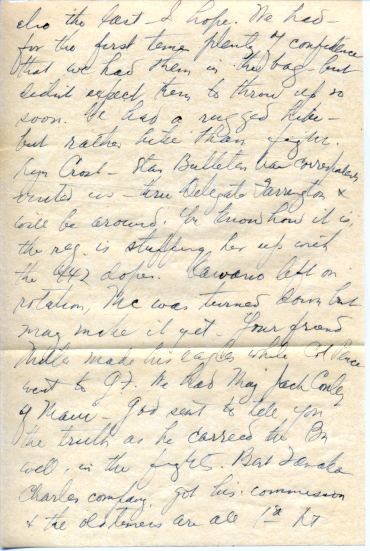 also the last I hope. We had -
for the first time plenty of confidence
that we had them in the bag but
didn't expect them to throw up so
soon. We had a rugged hike -
but rather hike than fight.
Lyn Crost - Star Bulletin war correspondent
visited us - thru Delegate Farrington &
will be around. You know how it is
the reg. is stuffing her up with
the 442 dope. Kawano left on
rotation, Mc was turned down but
may make it yet - Your friend
Miller made his eagles while Col Pence
went to G-. We had Maj Jack Conley
of Maui - God sent to tell you
the truth as he carried the Bn
well, in the fights. Bert Tanaka
Charles company, got his commission
& the old timers are all 1st Lt